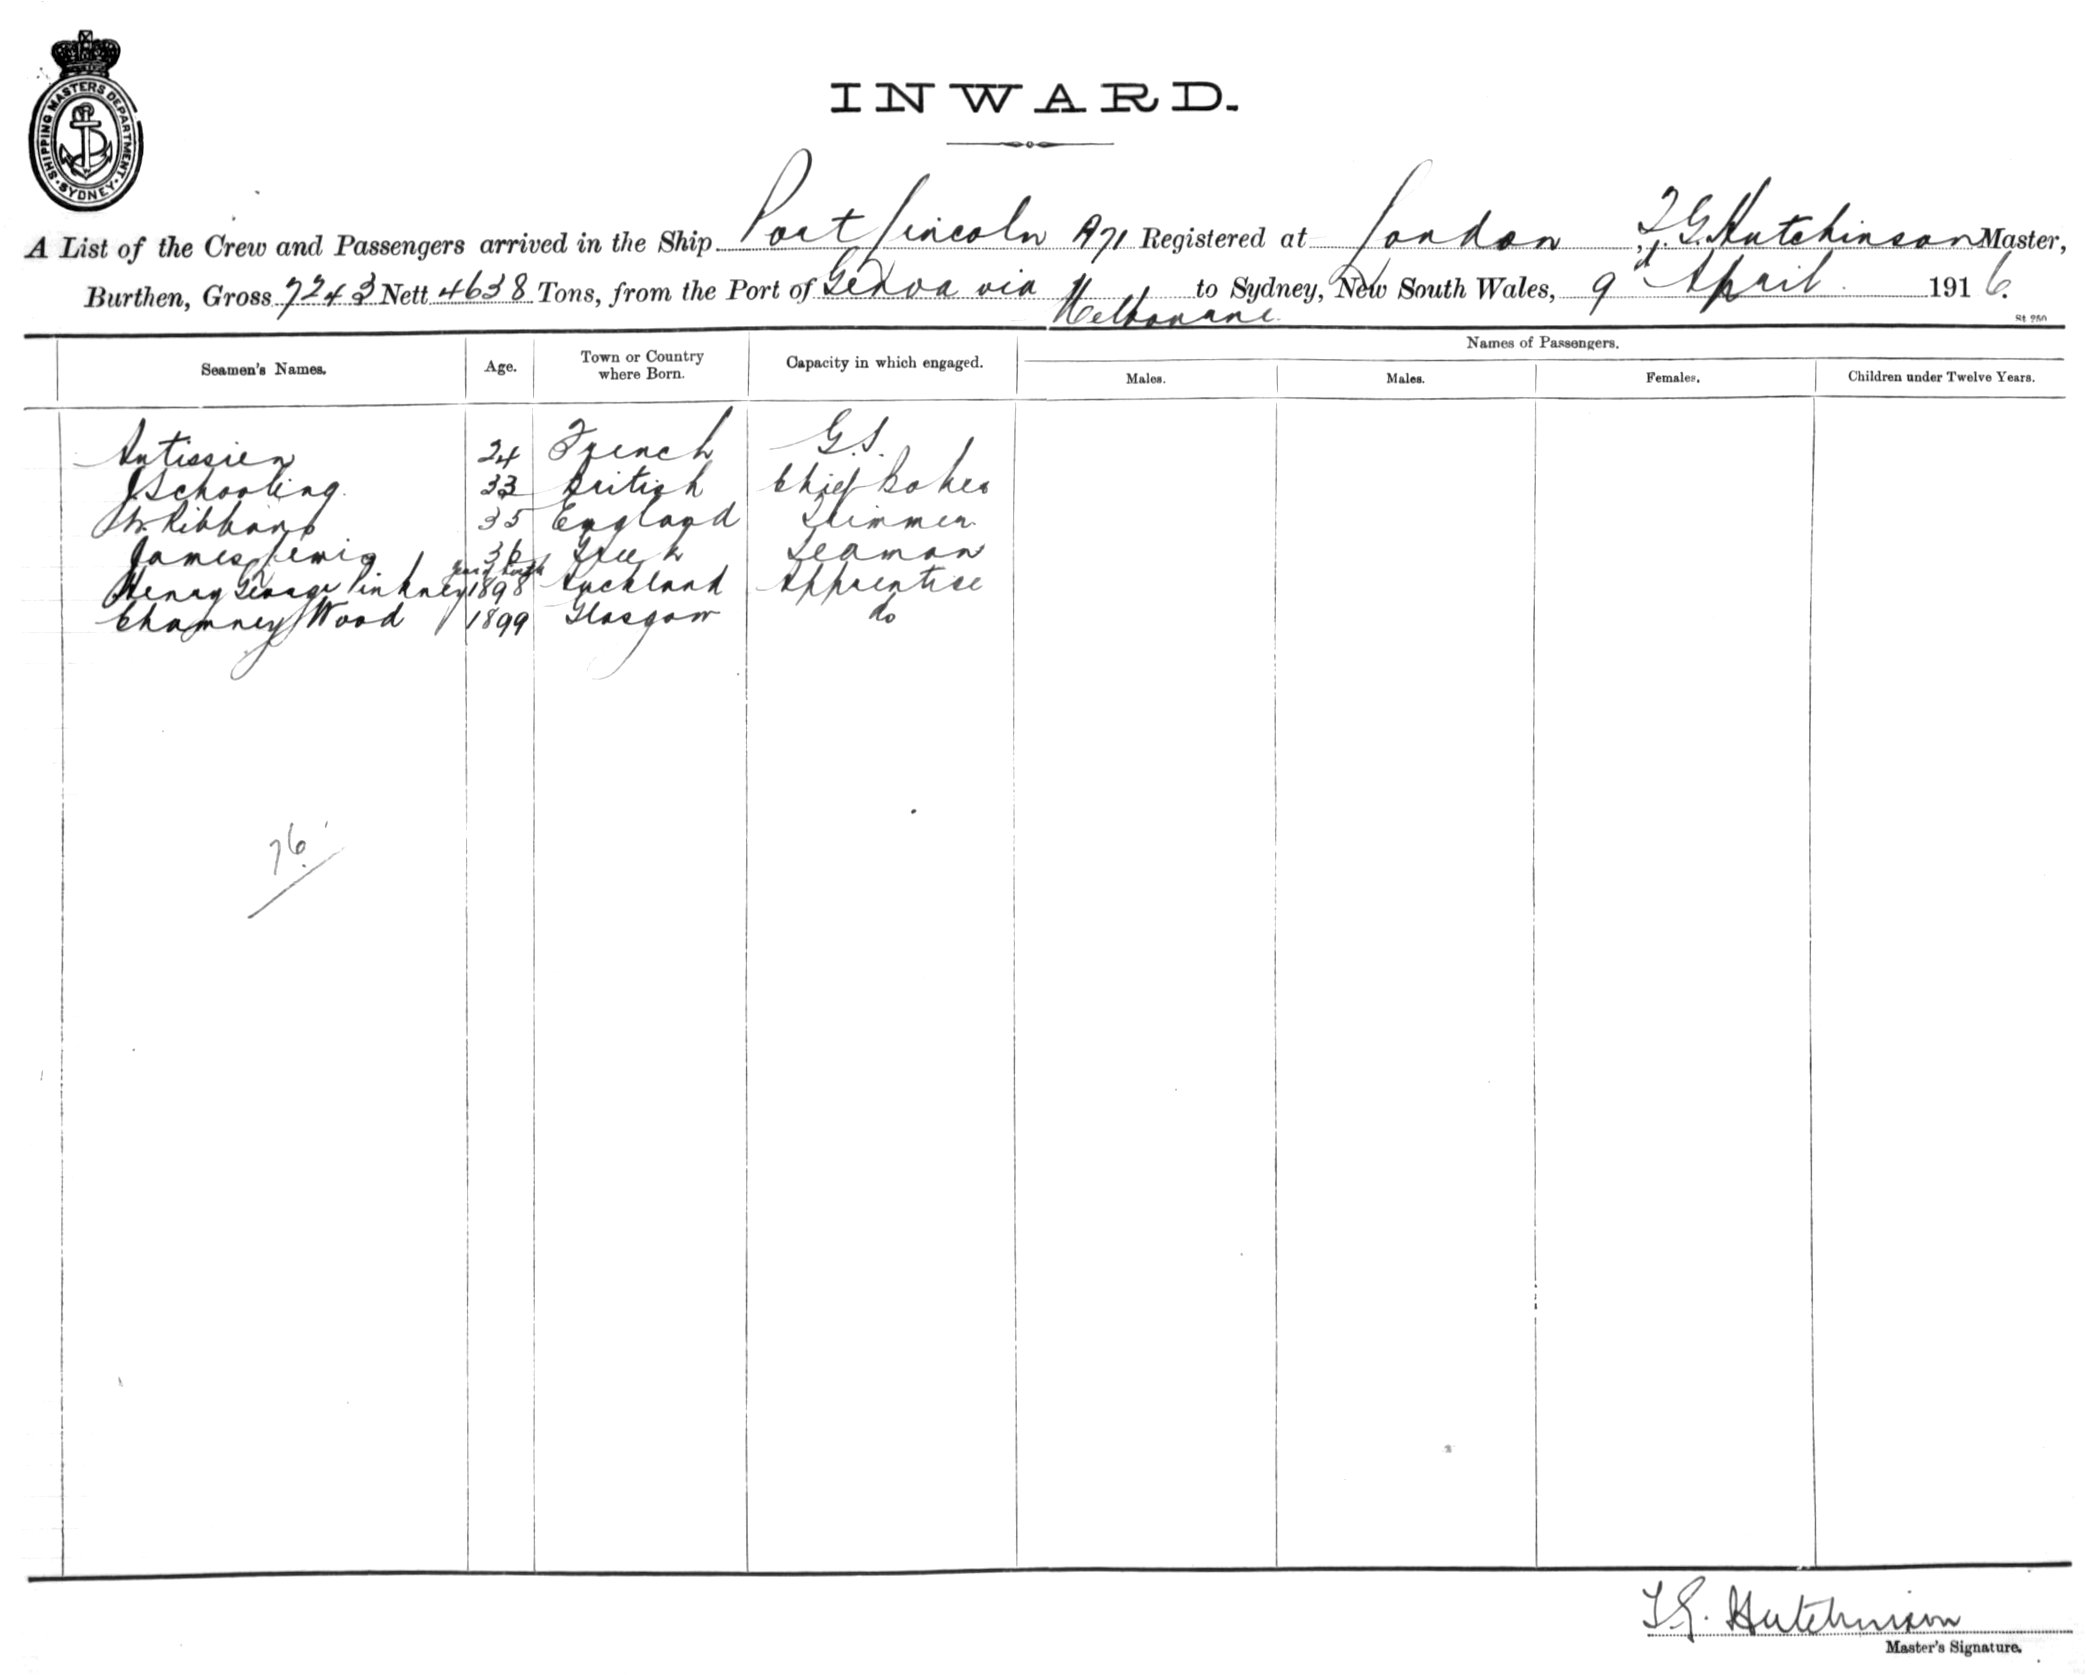 SHIPPING MASTERS DEPARTMENT
SYDNEY
INWARD.
A List of the Crew and Passengers arrived in the Ship Port Lincoln A71 Registered at London, T. G. Hutchinson Master,
Burthen, Gross 7243 Nett 4638 Tons, from the Port of Genoa via Melbourne to Sydney, New South Wales, 9 April 1916.
Seamen's Names. Age. Town or Country where Born. Capacity in which engaged. Names of Passengers.
Males. Males. Females. Children under Twelve Years.
Antissien 24 French G.S.
J Schooling 33 British Chief Baker
W. Ribbans 35 England Trimmer
James Lewis 36 Greek Seaman
year of birth
Henry George Pinkney 1898 Auckland Apprentice
Chamney Wood 1899 Glasgow do
76
T G. Hutchinson
Master's Signature.